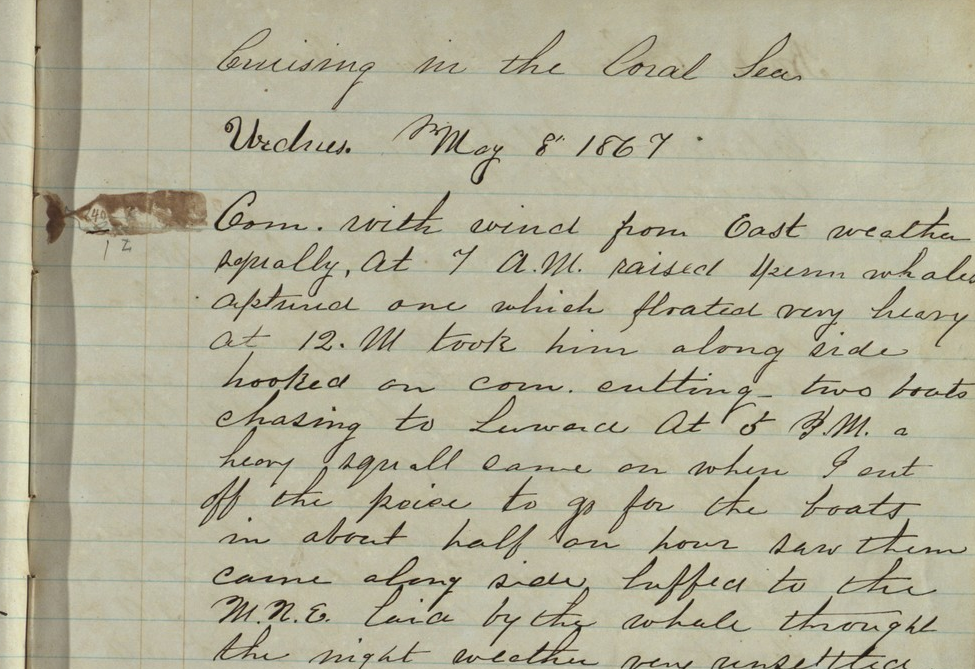 Cruising in the Coral Sea
Wednes. May 8" 1867
40
12
Com. with wind from East weather
squally, At 7 A.M. raised sperm whales
captured one which floated very heavy
at 12. M took him along side
hooked on com. cutting two boats
chasing to Leward At 5 P.M. a
heavy squall came on when I cut
off the peice to go for the boats
in about half an hour saw them
came along side, luffed to the
M.N.E. laid by the whale throught
the night weather very unsettled